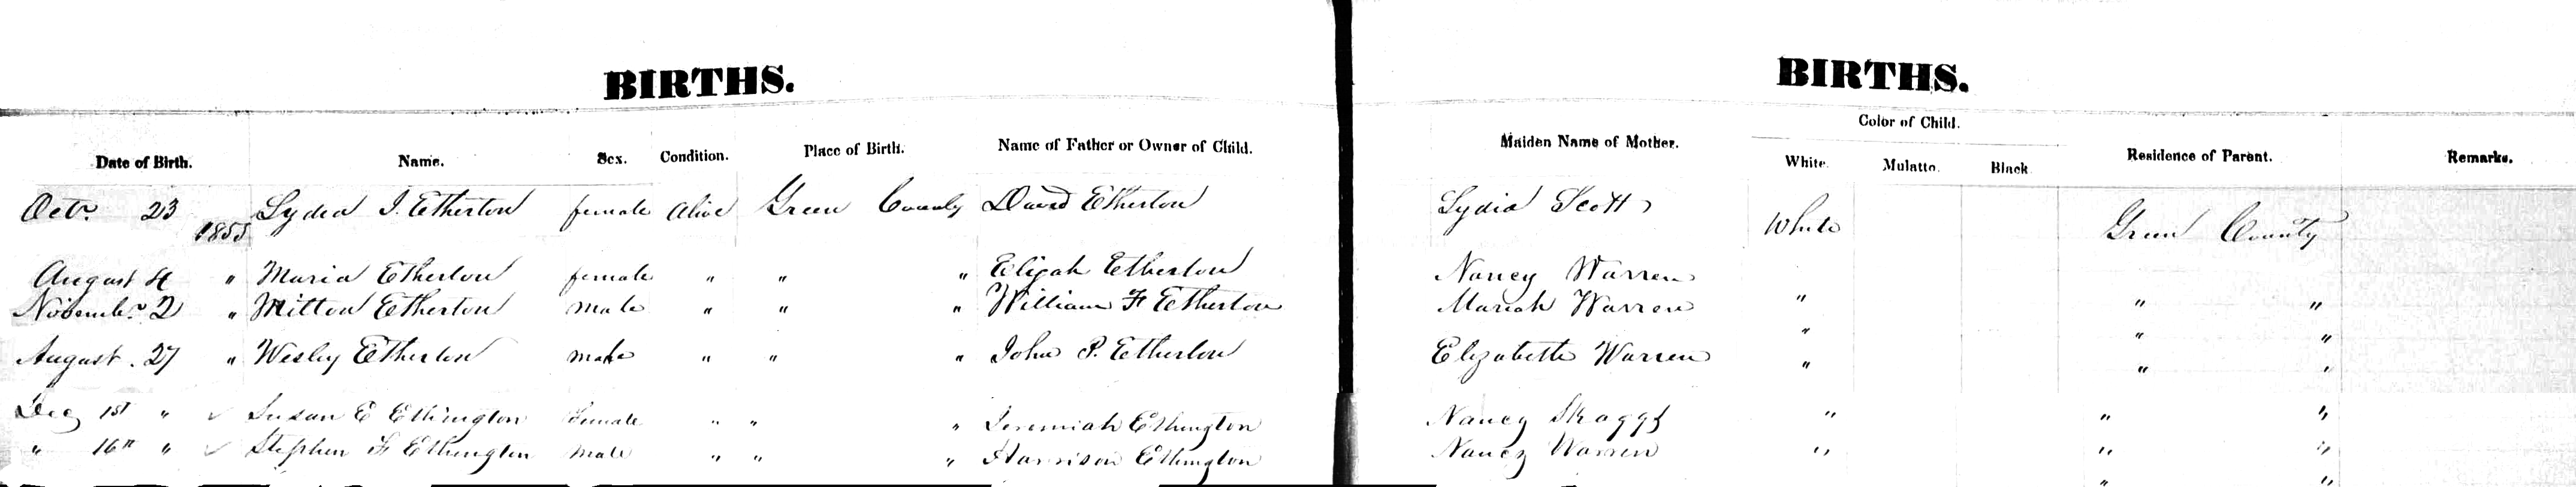 BIRTHS. BIRTHS.
Color of Child.
Date of Birth. Name. Sex. Condition. Place of Birth. Name of Father or Owner of Child. Maiden Name of Mother. White. Mulatto. Black. Residence of Parent. Remarks.
Octr. 23 1855 Lydia I. Etherton female Alive Green County David Etherton Lydia Scott White Green County
August 4 " Maria Etherton female " " " Elijah Etherton Nancy Warren " " "
November 2 " Milton Etherton male " " " William F Etherton Mariah Warren " " "
August. 27 " Wesley Etherton male " " " John P. Etherton Elizabeth Warren " " "
Dec 1st " ✓ Susan E Ethington Female " " " Jeremiah Ethington Nancy Skaggs " " "
" 16th " ✓ Stephen F Ethington Male " " " Harrison Ethington Nancy Warren " " "
" "